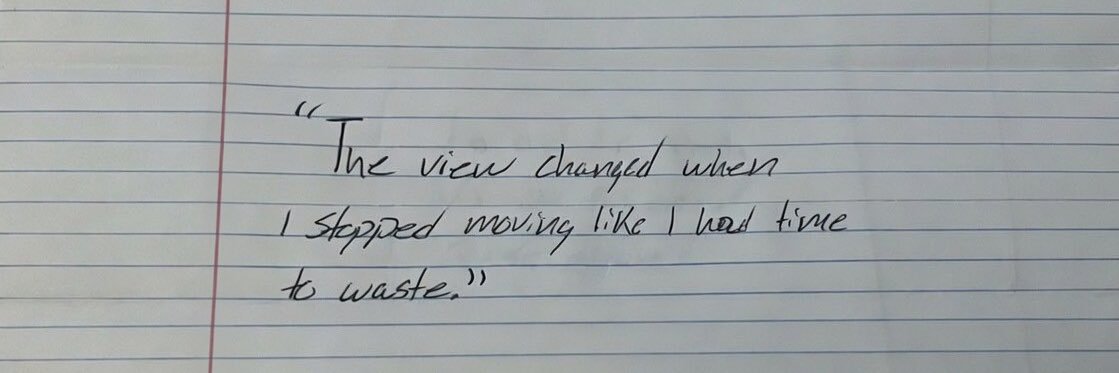 “The view changed when
I stopped moving like I had time
to waste.”